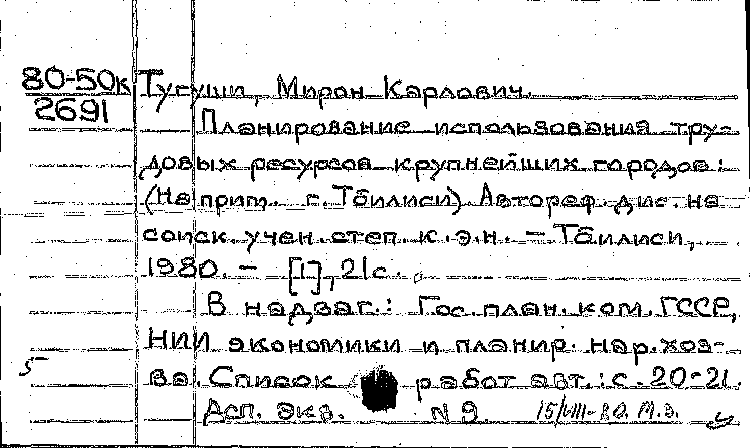 80-50к
2691
Тугуши, Мирон Карлович.
Планирование использования тру-
довых ресурсов крупнейших городов:
(На прим. г. Тбилиси) Автореф. дис. на
соиск. учен. степ. к.э.н. – Тбилиси,
1980. – [1], 21 с.
В надзаг.: Гос. план. ком. ГССР,
НИИ экономики и планир. нар. хоз-
ва. Список работ авт.: с. 20-21.
5
Дсп. экз. N 9 15/VIII-80. М.З.